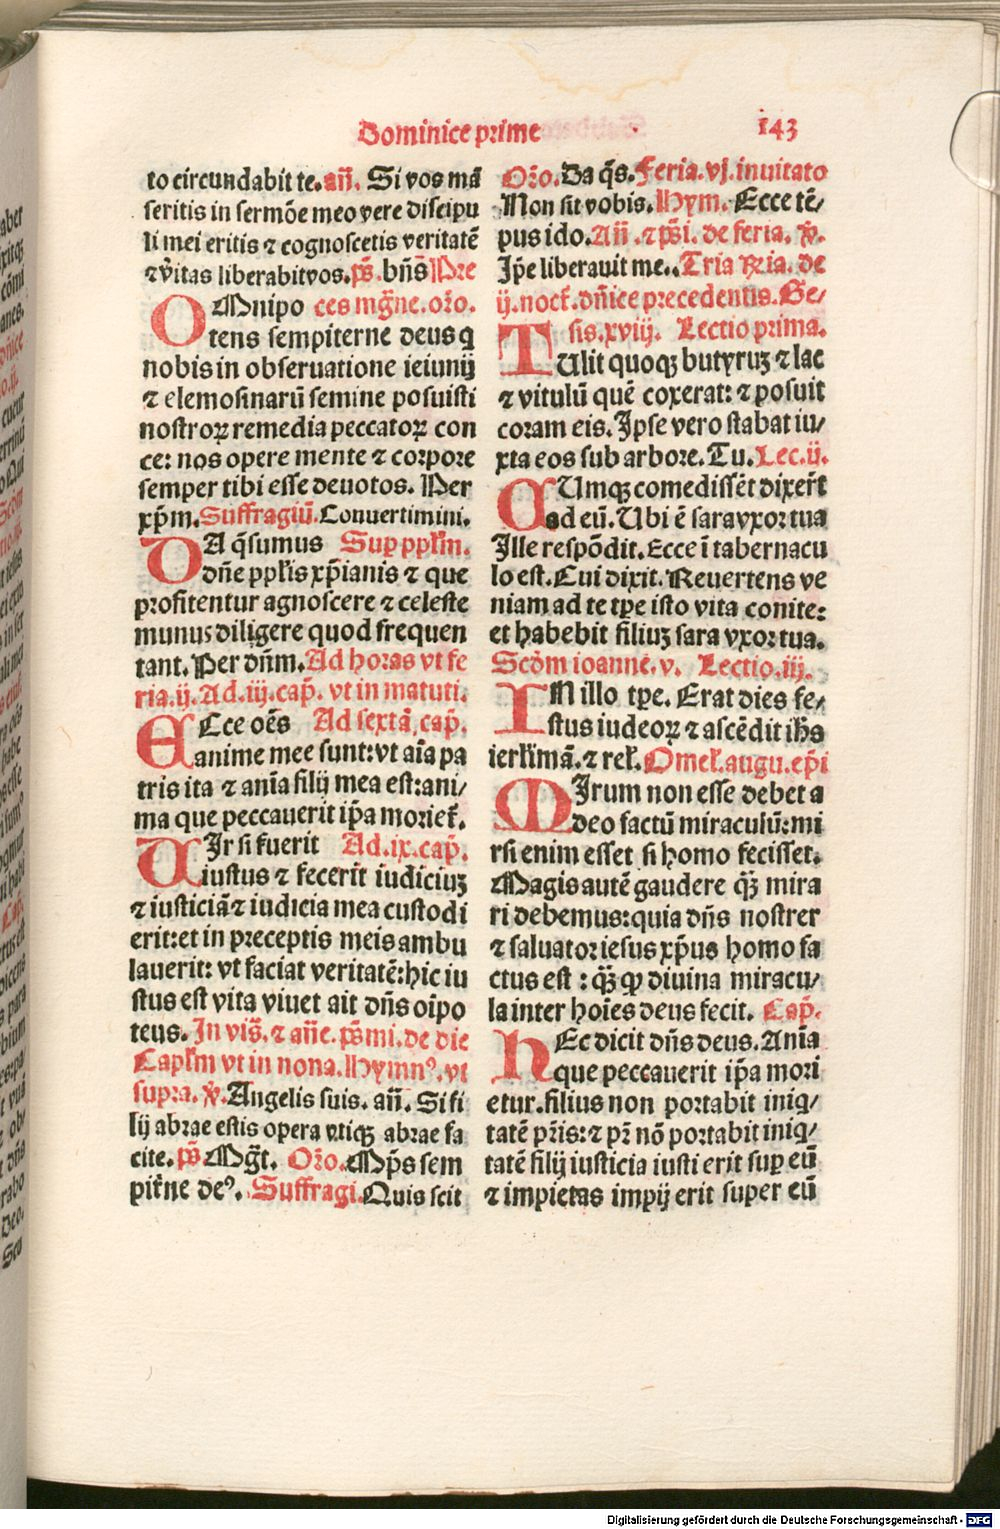 Dominice prime
143
to circundabit te. añ. Si vos mã
seritis in sermõe meo vere discipu
li mei eritis ⁊ cognoscetis veritatẽ
⁊ v̾itas liberabit vos. ps̃. bñs Pre
OMnipo ces mg̃ne. or̃o.
tens sempiterne deus q
nobis in obseruatione ieiunij
⁊ elemosinarũ semine posuisti
nostroꝝ remedia peccatoꝝ con
ce: nos opere mente ⁊ corpore
semper tibi esse deuotos. Per
xp̃m. Suffragiũ. Conuertimini.
DA q̃sumus Sup ppl̃m.
dñe ppl̃is xp̃ianis ⁊ que
profitentur agnoscere ⁊ celeste
munus diligere quod frequen
tant. Per dñm. Ad horas vt fe
ria. ij. Ad. iij. cap̃. vt in matuti.
ECce oẽs Ad sextã cap̃.
anime mee sunt: vt aĩa pa
tris ita ⁊ anĩa filij mea est: ani/
ma que peccauerit ip̃a moriet̃.
VIr si fuerit Ad. ix. cap̃.
iustus ⁊ fecerit iudiciuꝫ
⁊ iusticiã ⁊ iudicia mea custodi
erit: et in preceptis meis ambu
lauerit: vt faciat veritatẽ: hic iu
stus est vita viuet ait dñs oĩpo
teus. In vis̃. ⁊ añe. ps̃mi. de die
Capl̃m vt in nona. Hymnꝰ. vt
supra. v̾. Angelis suis. añ. Si fi
lij abrae estis opera vtiqꝫ abrae fa
cite. ps̃ Mg̃t. Or̃o. Mp̃s sem
pit̃ne deꝰ. Suffragi. Quis scit
Or̃o. Da q̃s. Feria. vj. inuitato
Non sit vobis. Hym. Ecce tẽ/
pus ido. Añ. ⁊ ps̃i. de feria. v̾.
Ip̃e liberauit me.. Tria R̃ia. de
ij. noct̃. dñice precedentis. Ge/
sis. xviij. Lectio prima.
TUlit quoqꝫ butyruꝫ ⁊ lac
⁊ vitulũ quẽ coxerat: ⁊ posuit
coram eis. Ipse vero stabat iu/
xta eos sub arbore. Tu. Lec. ij.
CUmqꝫ comedissẽt dixer̃t
ad eũ. Ubi ẽ sara vxor tua
Ille respõdit. Ecce ĩ tabernacu
lo est. Cui dixit. Reuertens ve
niam ad te tp̃e isto vita comite:
et habebit filiuꝫ sara vxor tua.
Scd̃m ioannẽ. v. Lectio. iij.
IN illo tp̃e. Erat dies fe/
stus iudeoꝝ ⁊ ascẽdit ih̃s
ierl̃imã. ⁊ rel̃. Omel̃. augu. ep̃i
MIrum non esse debet a
deo factũ miraculũ: mi
rsi enim esset si homo fecisset.
Magis autẽ gaudere q̃ꝫ mira
ri debemus: quia dñs nostrer
⁊ saluator iesus xp̃us homo fa
ctus est : q̃ꝫ ꝙ diuina miracu/
la inter hoĩes deus fecit. Cap̃.
HEc dicit dñs deus. Anĩa
que peccauerit ip̃a mori
etur. filius non portabit iniq/
tatẽ pr̃is: ⁊ pr̃ nõ portabit iniq/
tatẽ filij iusticia iusti erit sup eũ
⁊ impietas impij erit super eũ
Digitalisierung gefördert durch die Deutsche Forschungsgemeinschaft - DFG